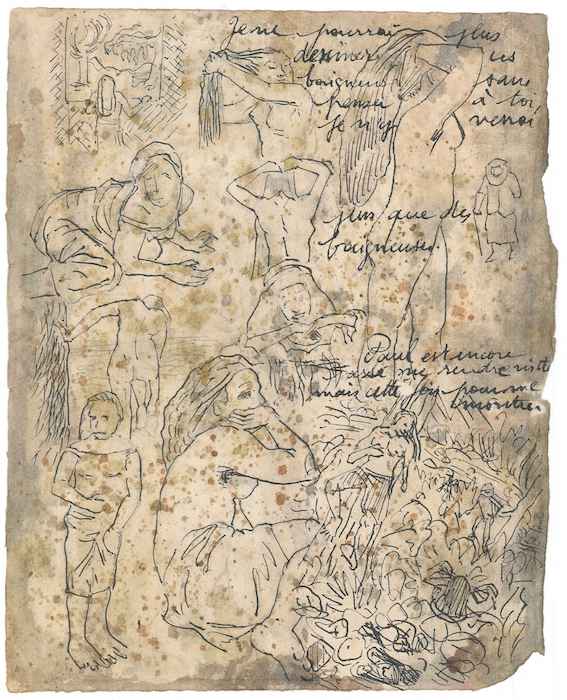 Je ne pourrai plus
dessiner les
baigneuses sans
penser à toi,
Je n'y verrai
plus que des
baigneuses.
Paul est encore
passé me rendre visite
mais cette fois pour me
montrer